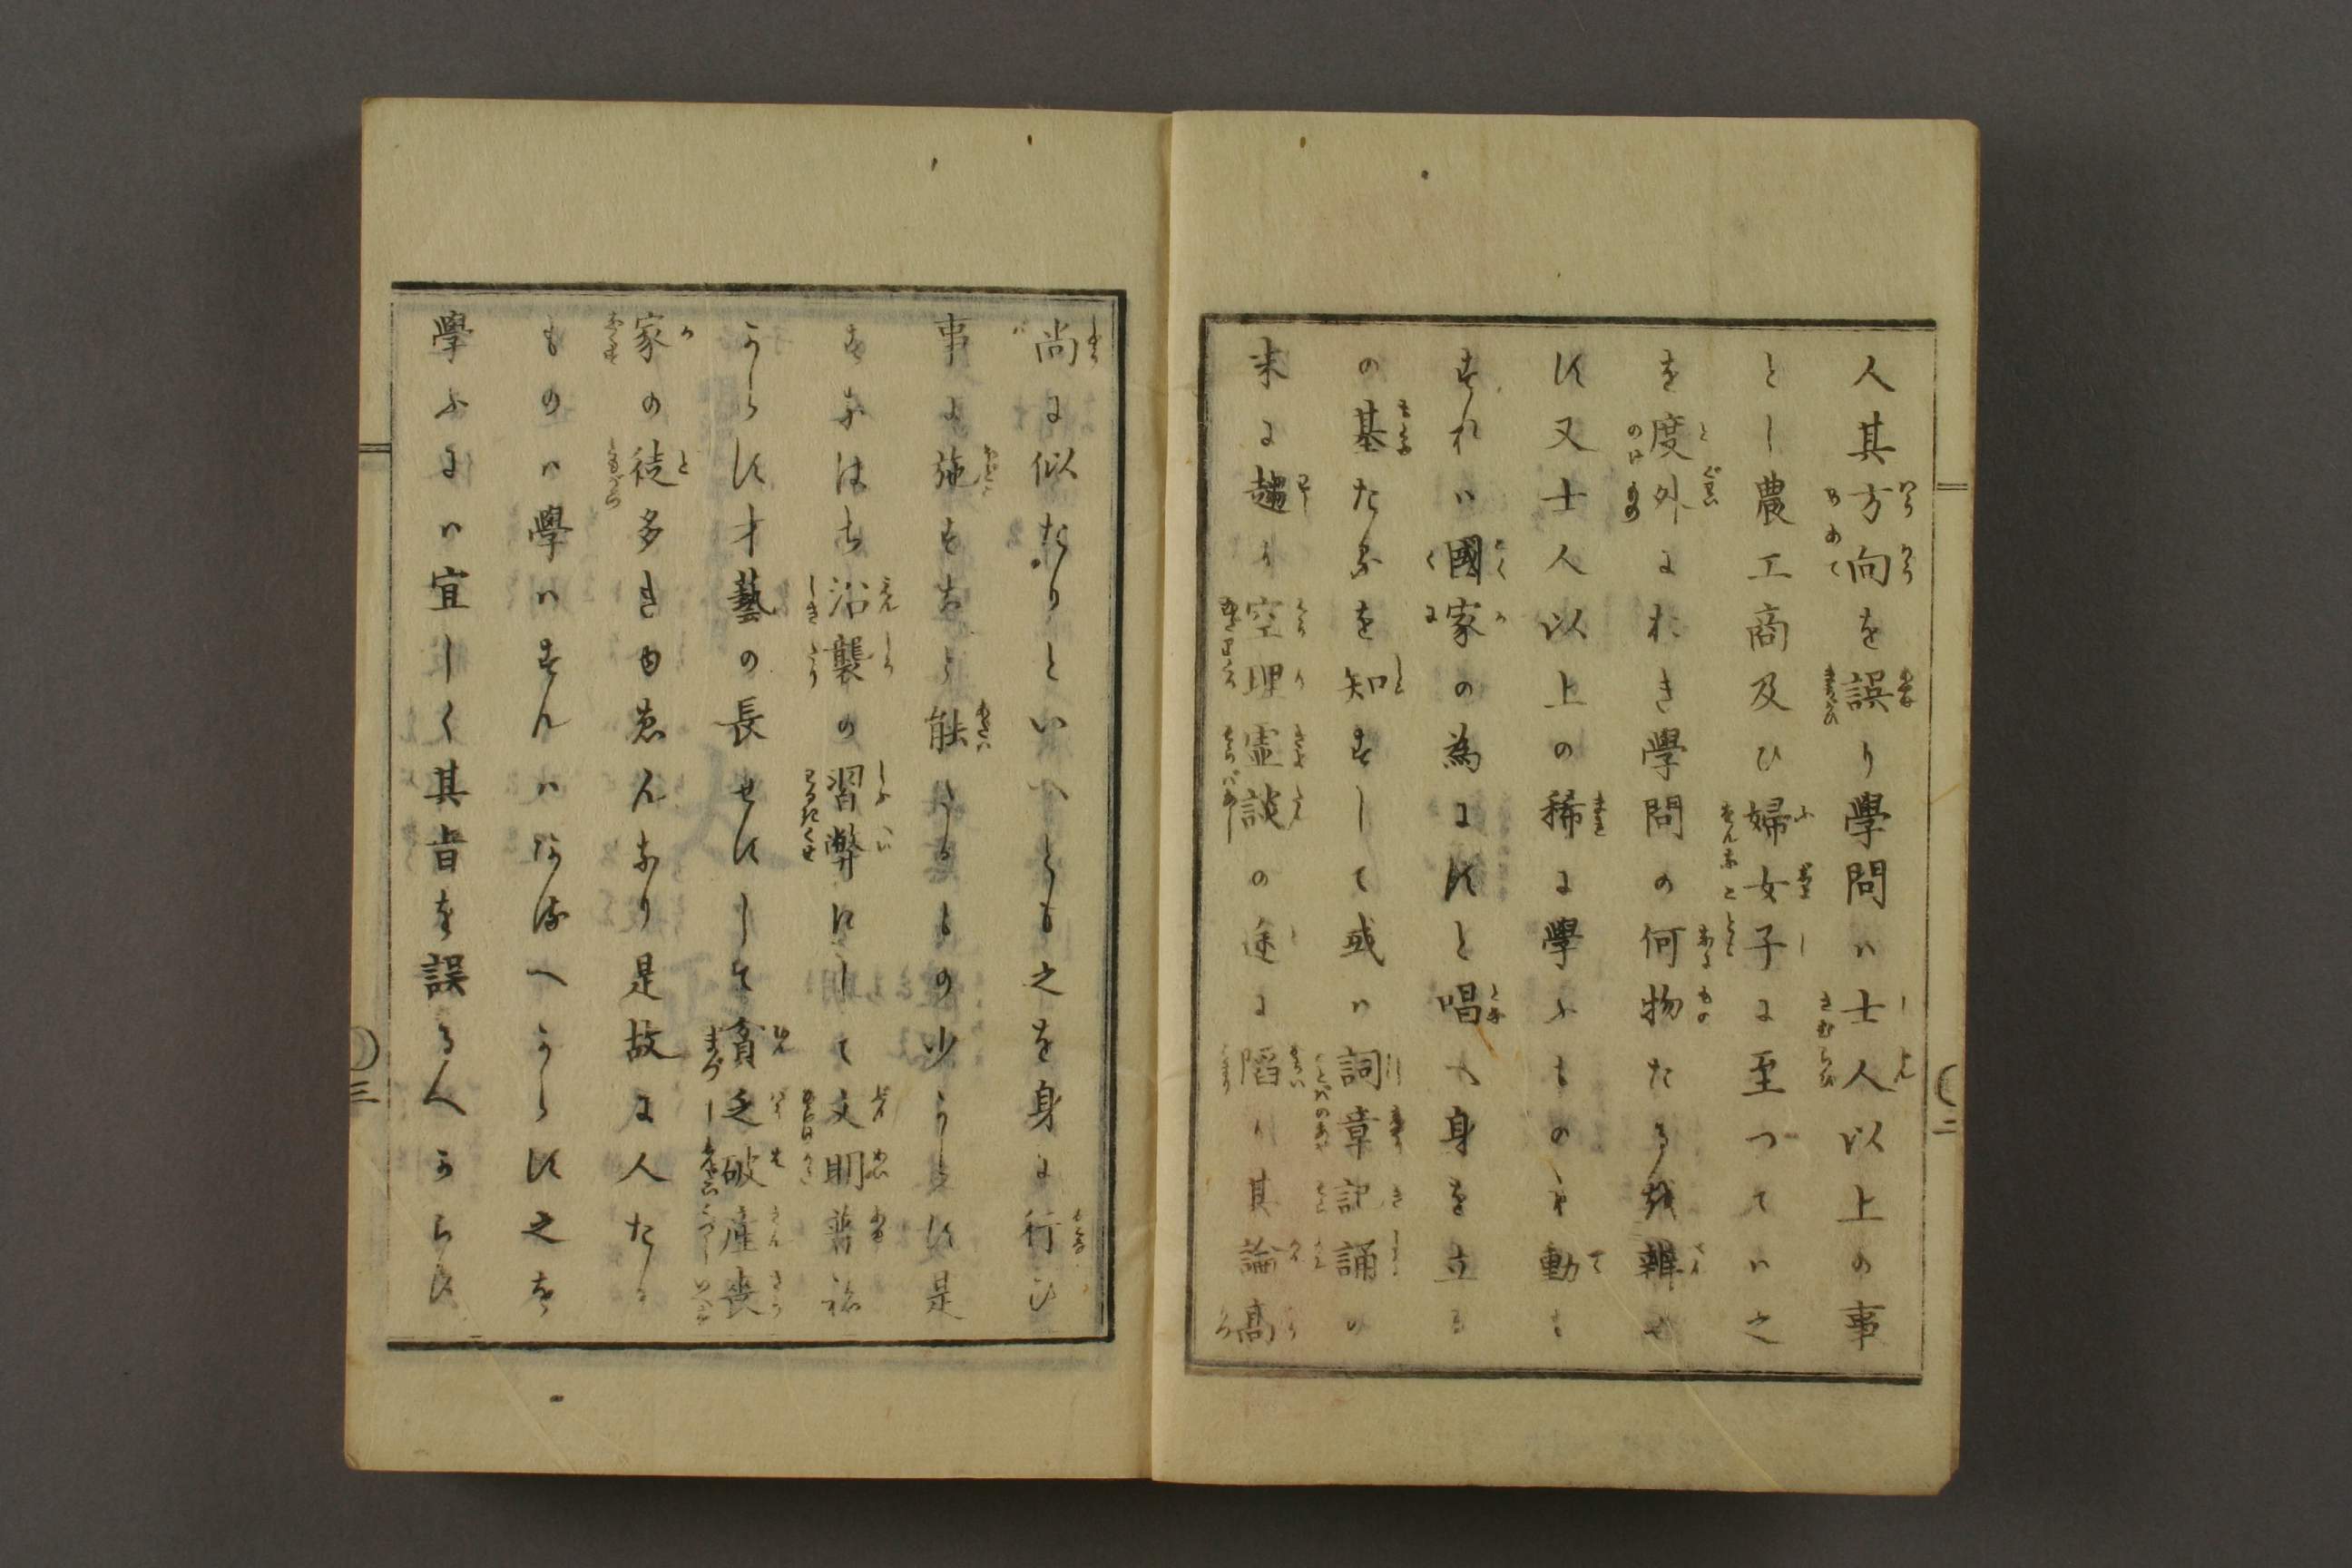 人其方向を誤り學問ハ士人以上の事
とし農工商及ひ婦女子に至つてハ之
を度外におき學問の何物たるを辨せ
す又士人以上の稀に學ふものも動も
すれハ國家の為にすと唱へ身を立る
の基たるを知すして或ハ詞章記誦の
末に趨り空理虚談の途に陷り其論高
尚に似たりといへとも之を身に行ひ
事に施すこと能さるもの少からす是
すなはち沿襲の習弊にして文明普ね
からす才藝の長せすして貧乏破産喪
家の徒多きゆゑんなり是故に人たる
ものハ學ハすんハあるへからす之を
學ふにハ宜しく其旨を誤るへからす
二
三